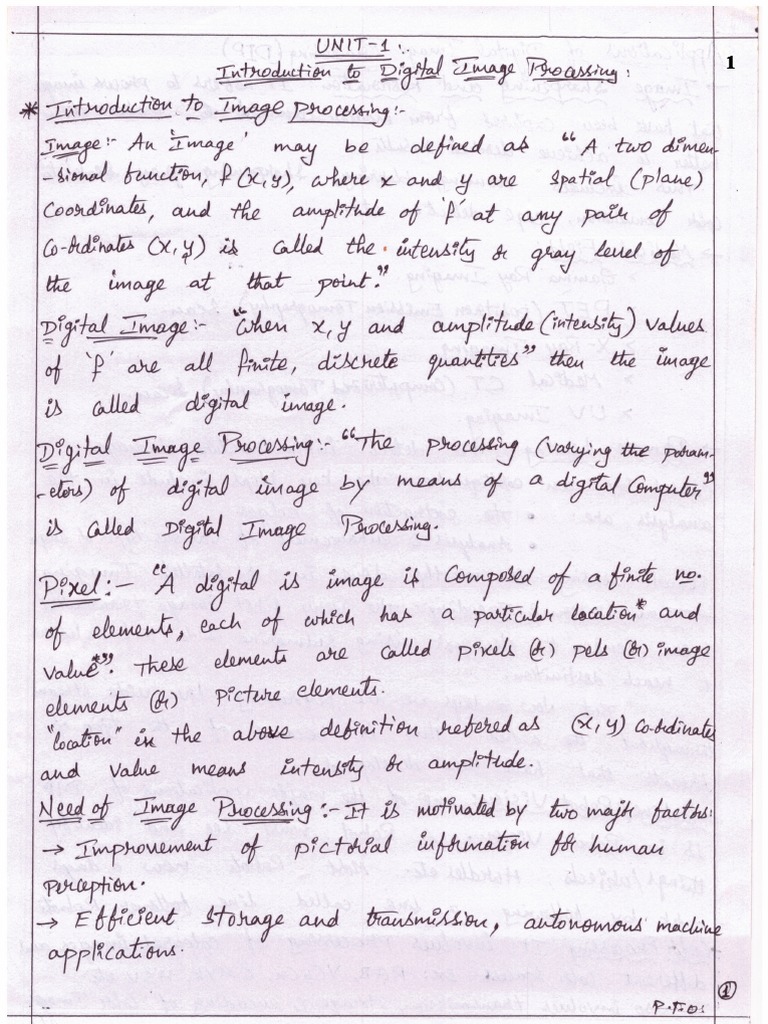 UNIT-1:-
1
Introduction to Digital Image Processing:
* Introduction to Image processing:-
Image:- An 'Image' may be defined as "A two dimen-
-sional function, f(x,y), where x and y are spatial (plane)
coordinates, and the amplitude of 'f' at any pair of
co-ordinates (x,y) is called the intensity or gray level of
the image at that point."
Digital Image:- "when x,y and amplitude (intensity) values
of 'f' are all finite, discrete quantities" then the image
is called digital image.
Digital Image Processing:- "The processing (varying the param-
-eters) of digital image by means of a digital computer"
is called Digital Image Processing.
Pixel:- "A digital is image is composed of a finite no.
of elements, each of which has a particular location* and
value*". These elements are called pixels (or) pels (or) image
elements (or) picture elements.
"location" in the above definition refered as (x,y) co-ordinates
and value means intensity or amplitude.
Need of Image Processing:- It is motivated by two major factors:
→ Improvement of pictorial information for human
perception.
→ Efficient storage and transmission, autonomous machine
applications.
①